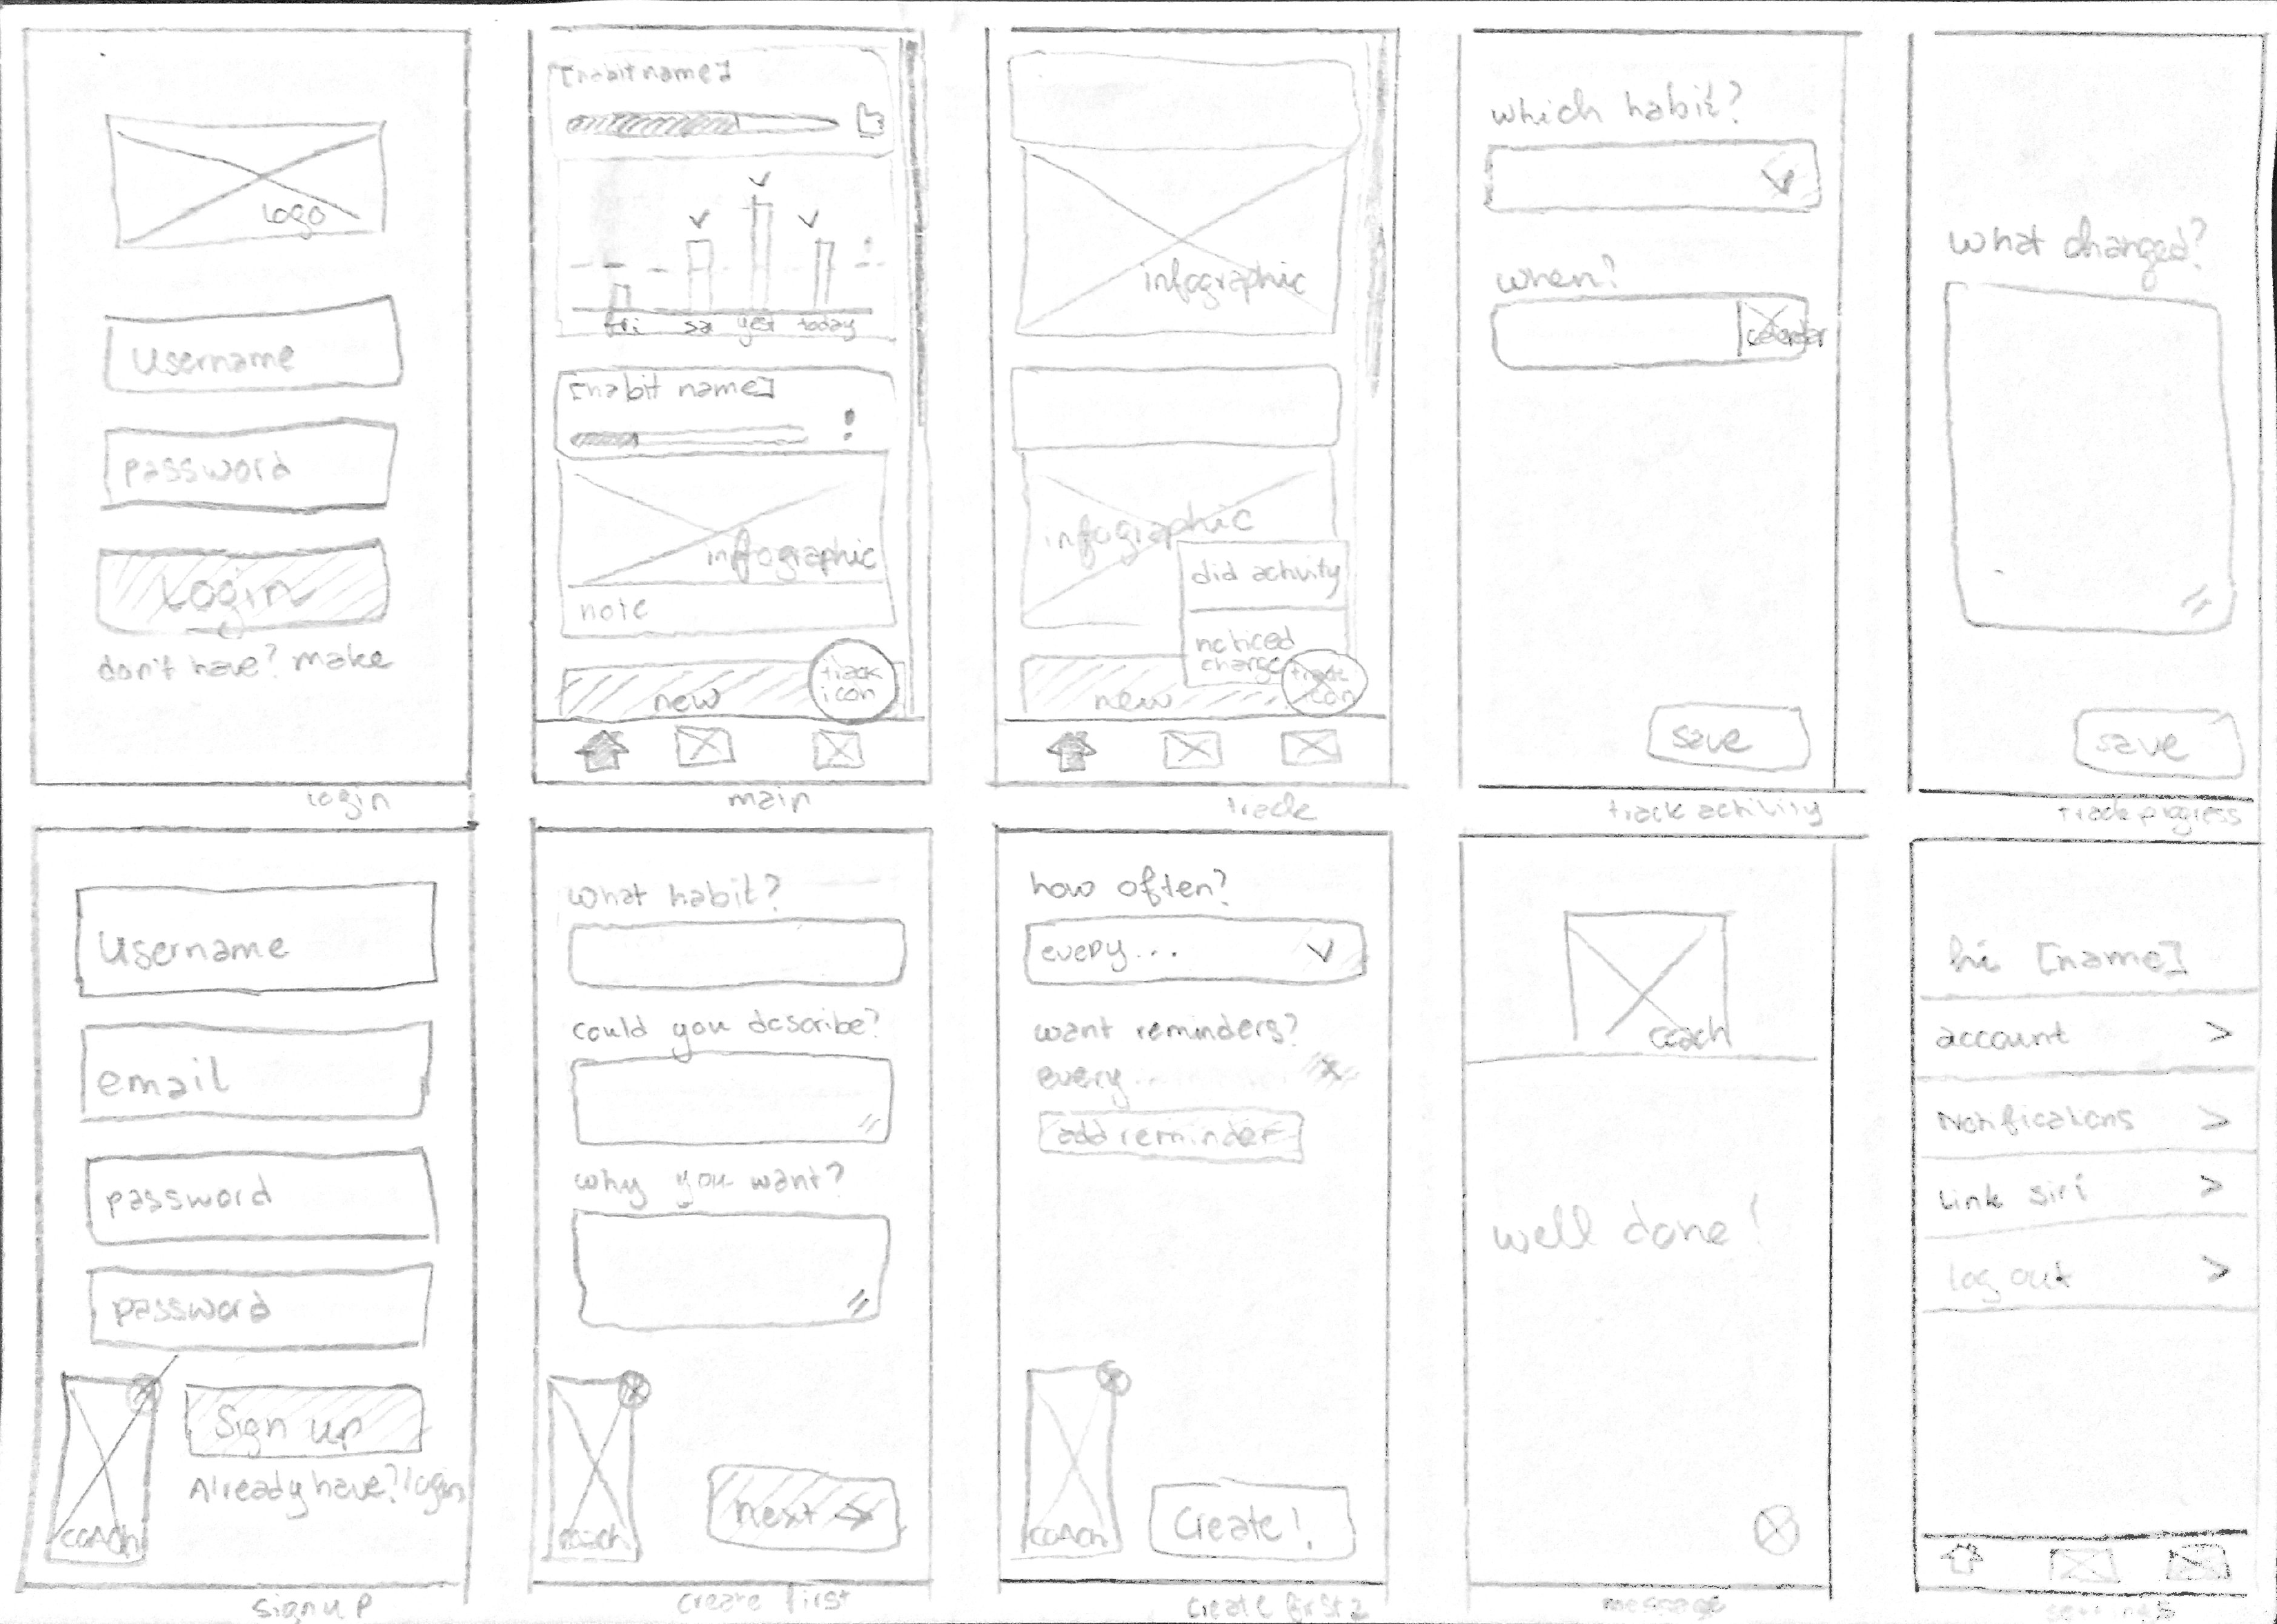 logo
Username
password
Login
don't have? make
login
[habit name]
fri sa yest today
[habit name]
infographic
note
new
track
icon
main
infographic
infographic
did activity
noticed
change
new
track
icon
track
which habit?
when?
calendar
save
track activity
what changed?
save
track progress
Username
email
password
password
coach
Sign up
Already have? login
sign up
what habit?
could you describe?
why you want?
coach
next →
create first
how often?
every...
want reminders?
every...
add reminder
coach
Create!
create first 2
coach
well done!
message
hi [name]
account >
Notifications >
Link siri >
log out >
settings